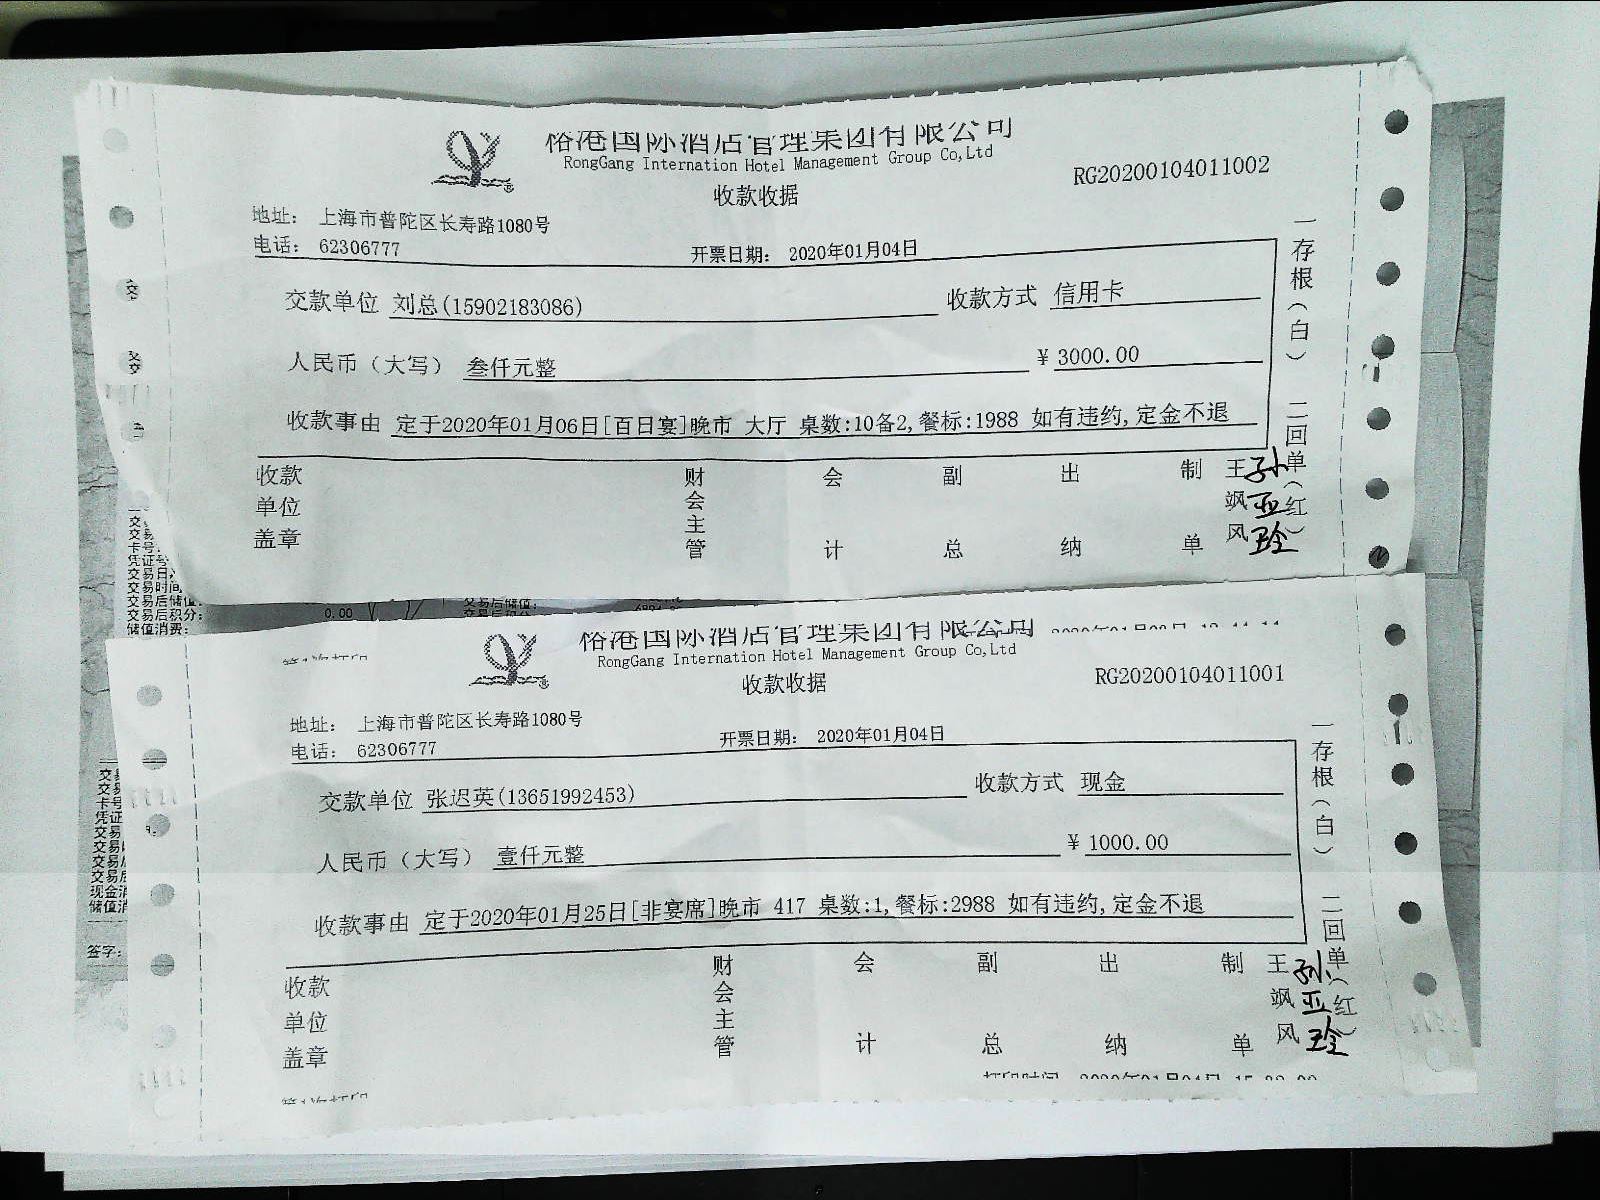 裕港国际酒店管理集团有限公司
RongGang Internation Hotel Management Group Co,Ltd
收款收据
RG20200104011002
地址： 上海市普陀区长寿路1080号
电话： 62306777
开票日期： 2020年01月04日
交款单位 刘总(15902183086)
收款方式 信用卡
人民币（大写） 叁仟元整
¥ 3000.00
收款事由 定于2020年01月06日[百日宴]晚市 大厅 桌数:10备2,餐标:1988 如有违约,定金不退
收款单位盖章
财会主管
会计
副总
出纳
制单
王飒风
孙亚玲
一存根（白）
二回单（红）
交易
交易
卡号:
凭证号
交易日
交易时间
交易后储值:
交易后积分:
储值消费:
0.00
交易后储值:
裕港国际酒店管理集团有限公司
RongGang Internation Hotel Management Group Co,Ltd
收款收据
RG20200104011001
地址： 上海市普陀区长寿路1080号
电话： 62306777
开票日期： 2020年01月04日
交款单位 张迟英(13651992453)
收款方式 现金
人民币（大写） 壹仟元整
¥ 1000.00
收款事由 定于2020年01月25日[非宴席]晚市 417 桌数:1,餐标:2988 如有违约,定金不退
收款单位盖章
财会主管
会计
副总
出纳
制单
王飒风
孙亚玲
一存根（白）
二回单（红）
签字: